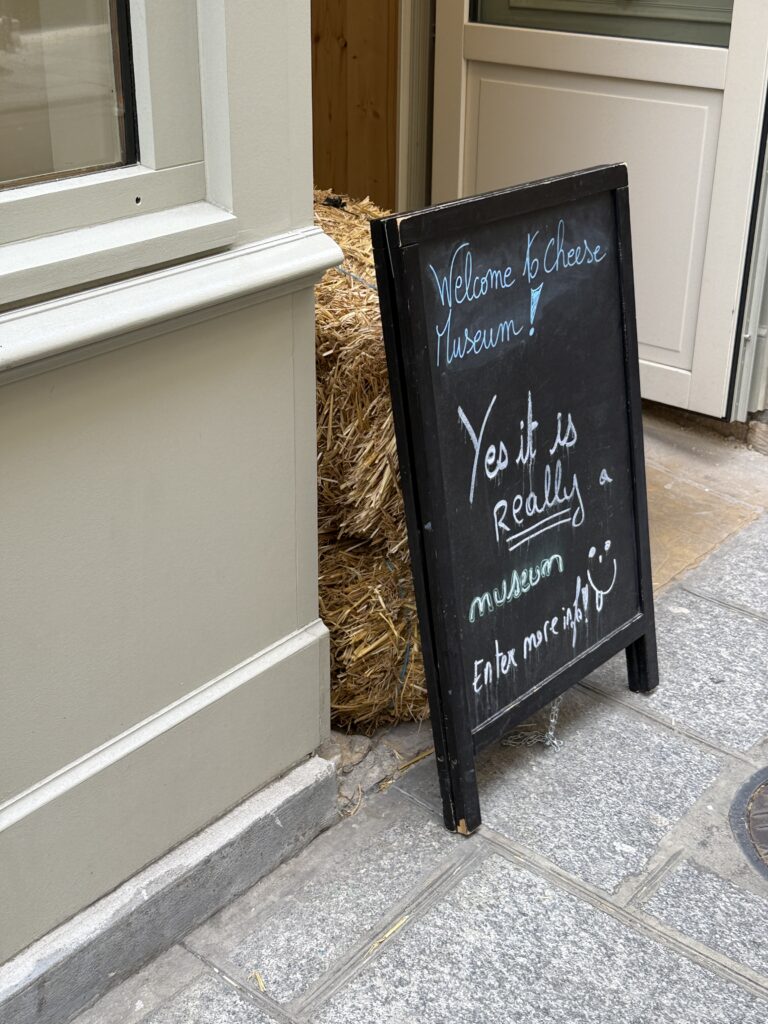 Welcome to Cheese
Museum !
Yes it is
REally a
museum
Enter more info!